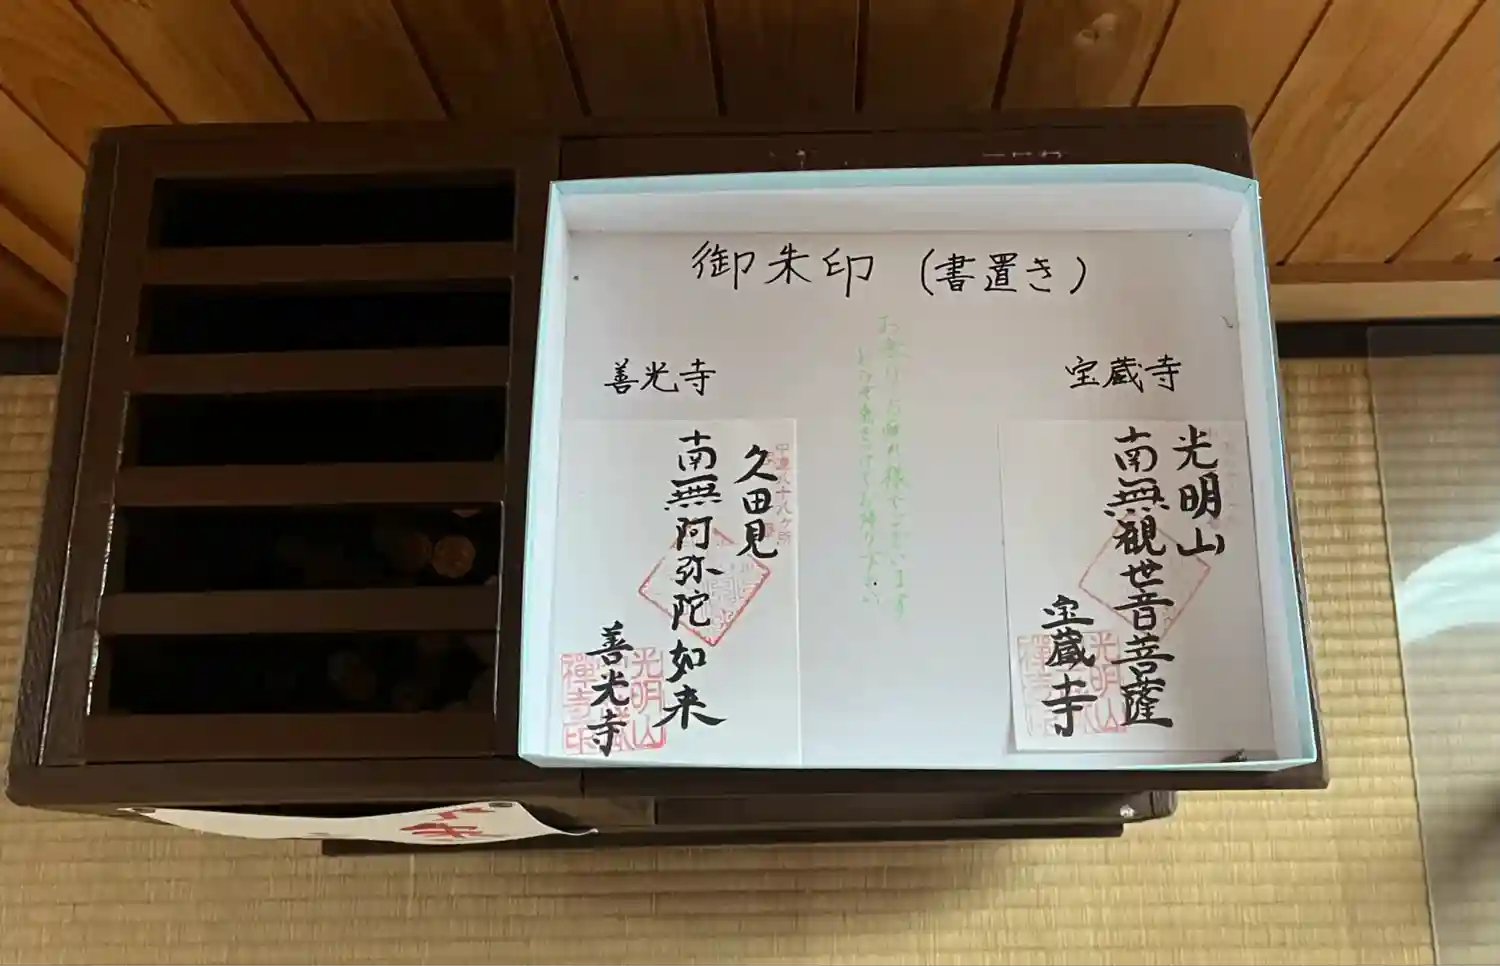 御朱印 (書置き)
宝蔵寺
光明山
南無観世音菩薩
宝蔵寺
お参りお疲れ様でございます
善光寺
久田見
南無阿弥陀如来
善光寺
光明山
禅寺印